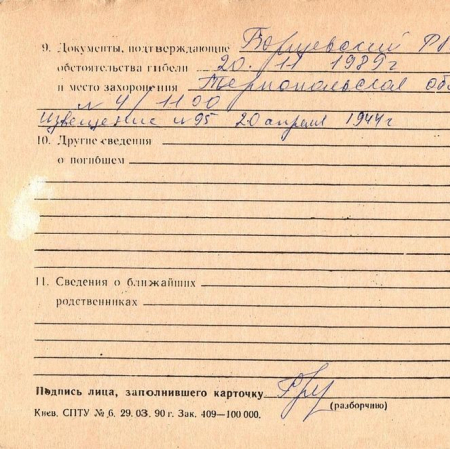 9. Документы, подтверждающие Борщевский РВ
обстоятельства гибели 20. 11 1989 г
и место захоронения Тернопольская об
№ 4/1100
Извещение № 95 20 апреля 1944 г.
10. Другие сведения
о погибшем
11. Сведения о ближайших
родственниках
Подпись лица, заполнившего карточку
(разборчиво)
Киев. СПТУ № 6. 29. 03. 90 г. Зак. 409—100 000.